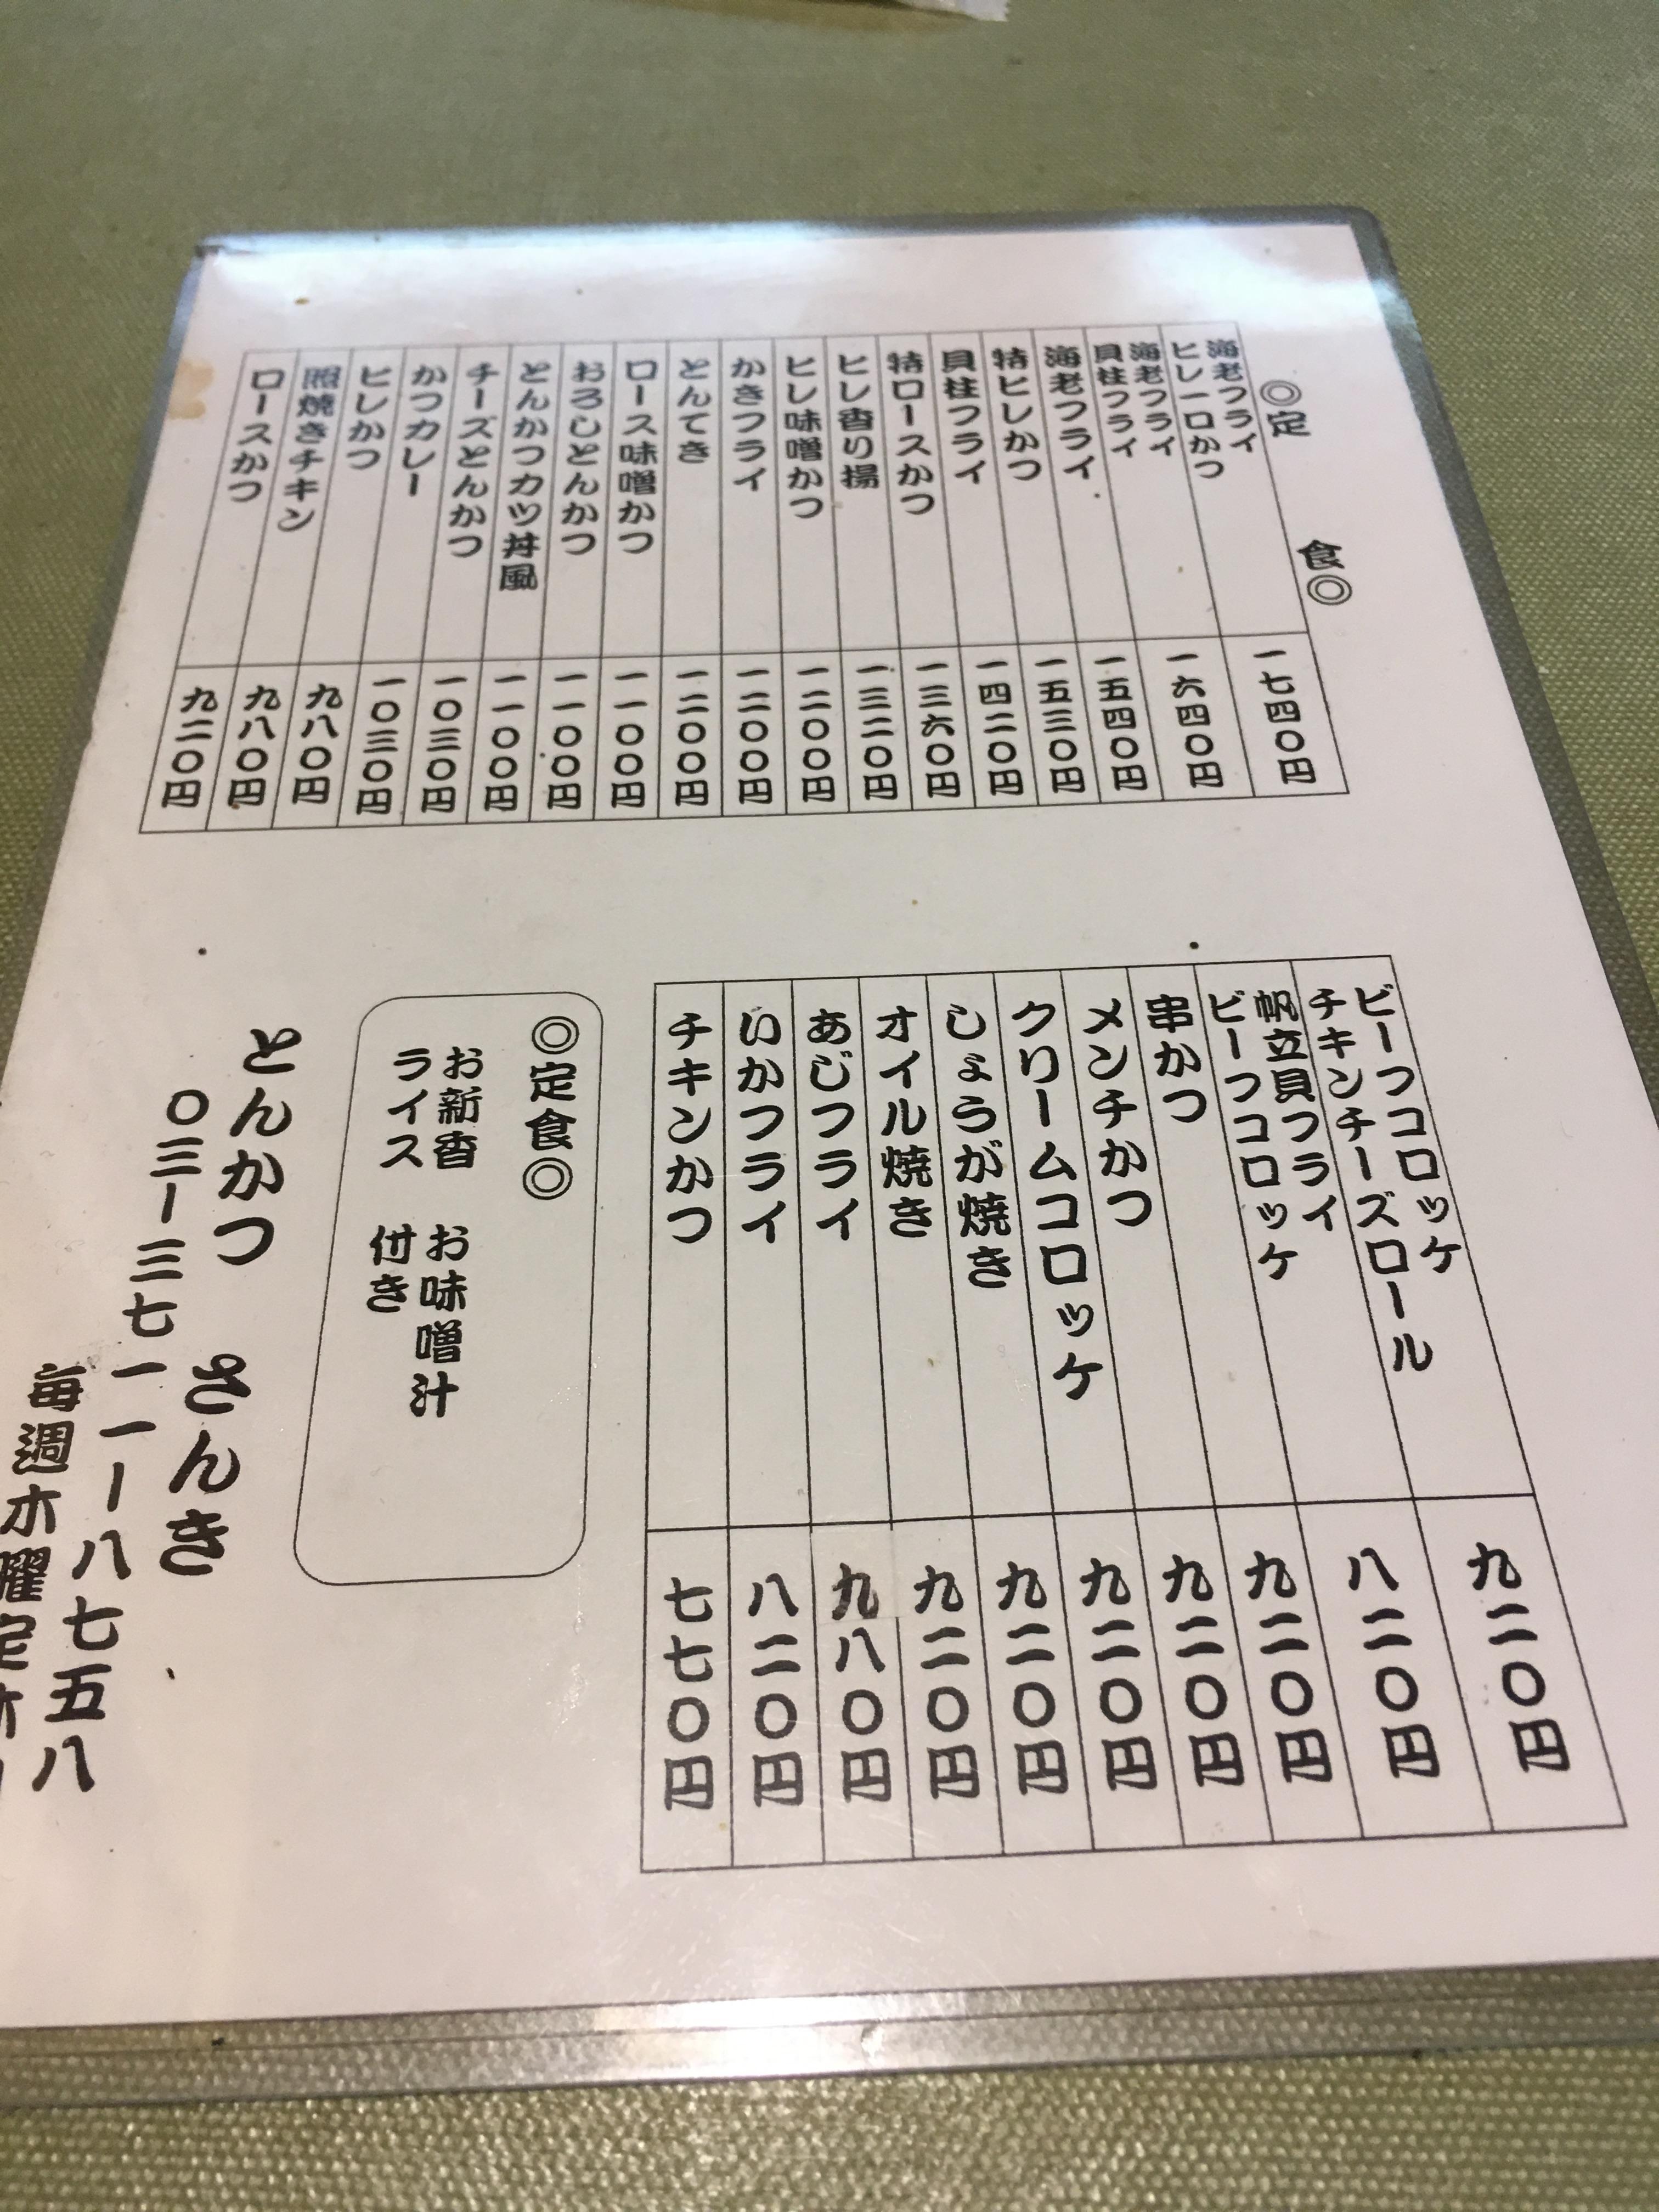 ◎定 食◎
海老フライ
ヒレ一口かつ
一七四〇円
海老フライ
貝柱フライ
一六四〇円
海老フライ
一五四〇円
特ヒレかつ
一五三〇円
貝柱フライ
一四二〇円
特ロースかつ
一三六〇円
ヒレ香り揚
一三二〇円
ヒレ味噌かつ
一二〇〇円
かきフライ
一二〇〇円
とんてき
一二〇〇円
ロース味噌かつ
一一〇〇円
おろしとんかつ
一一〇〇円
とんかつカツ丼風
一一〇〇円
チーズとんかつ
一〇三〇円
かつカレー
一〇三〇円
ヒレかつ
九八〇円
照焼きチキン
九八〇円
ロースかつ
九二〇円
ビーフコロッケ
チキンチーズロール
九二〇円
帆立貝フライ
ビーフコロッケ
八二〇円
串かつ
九二〇円
メンチかつ
九二〇円
クリームコロッケ
九二〇円
しょうが焼き
九二〇円
オイル焼き
九二〇円
あじフライ
九八〇円
いかフライ
八二〇円
チキンかつ
七七〇円
◎定食◎
お新香 お味噌汁
ライス 付き
とんかつ さんき
〇三ー三七一一ー八七五八
毎週木曜定休